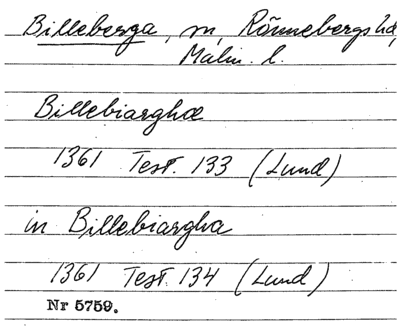 Billeberga, sn, Rönnebergs hd,
Malm. l.
Billebiarghæ
1361 Test. 133 (Lund)
in Billebiargha
1361 Test. 134 (Lund)
Nr 5759.